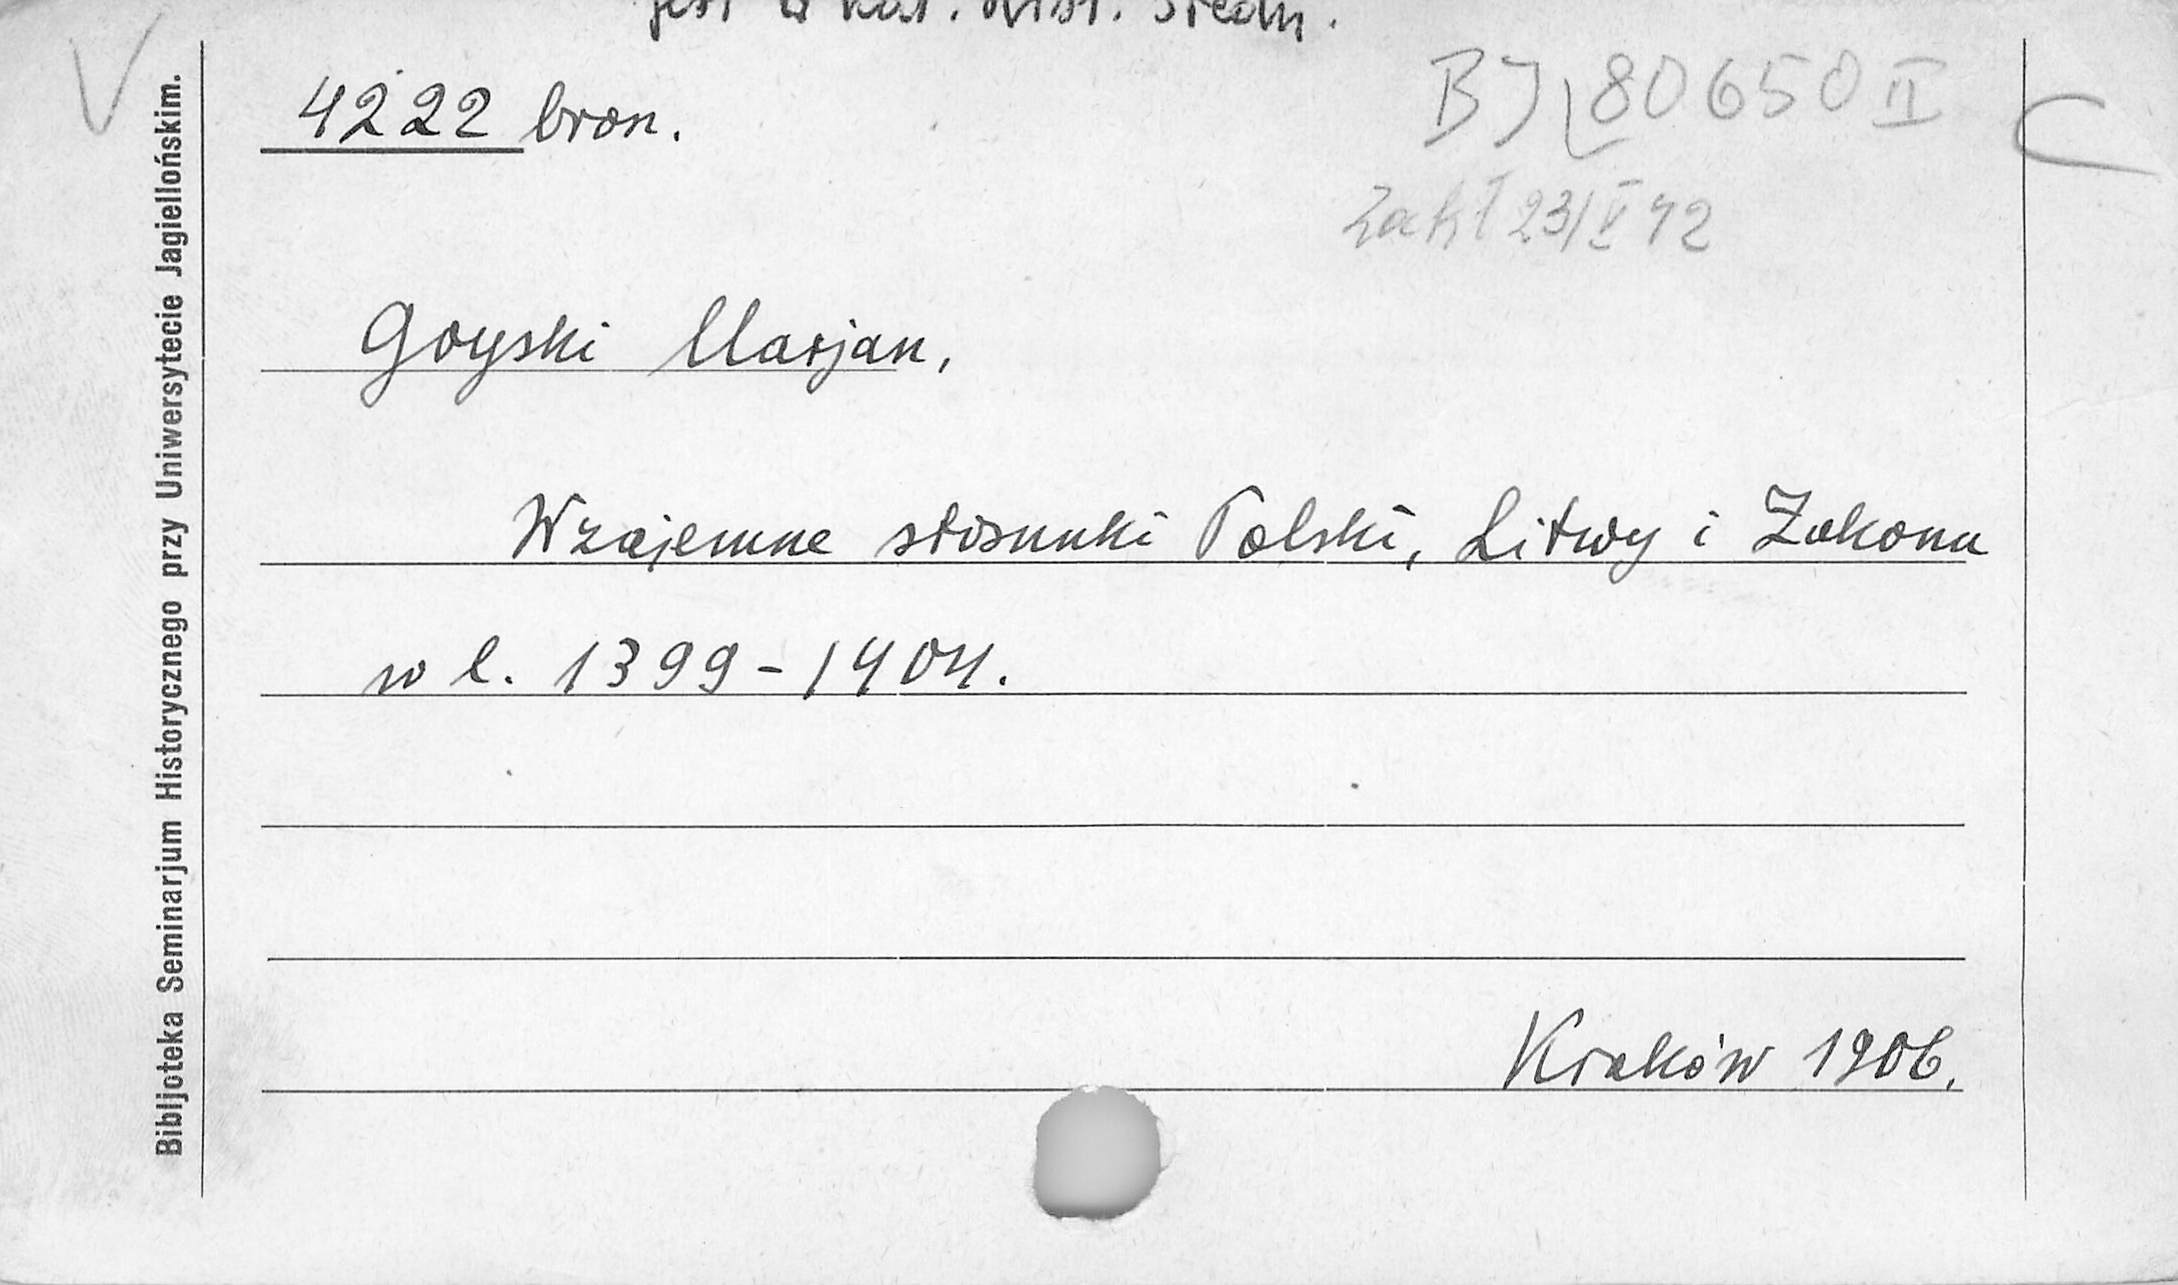 jest w kat. hist. średn.
BJ 80650 II
4222 bron.
Zakł 23/V 42
Goyski Marjan,
Wzajemne stosunki Polski, Litwy i Zakonu
w l. 1399-1404.
Kraków 1906.
Bibljoteka Seminarjum Historycznego przy Uniwersytecie Jagiellońskim.